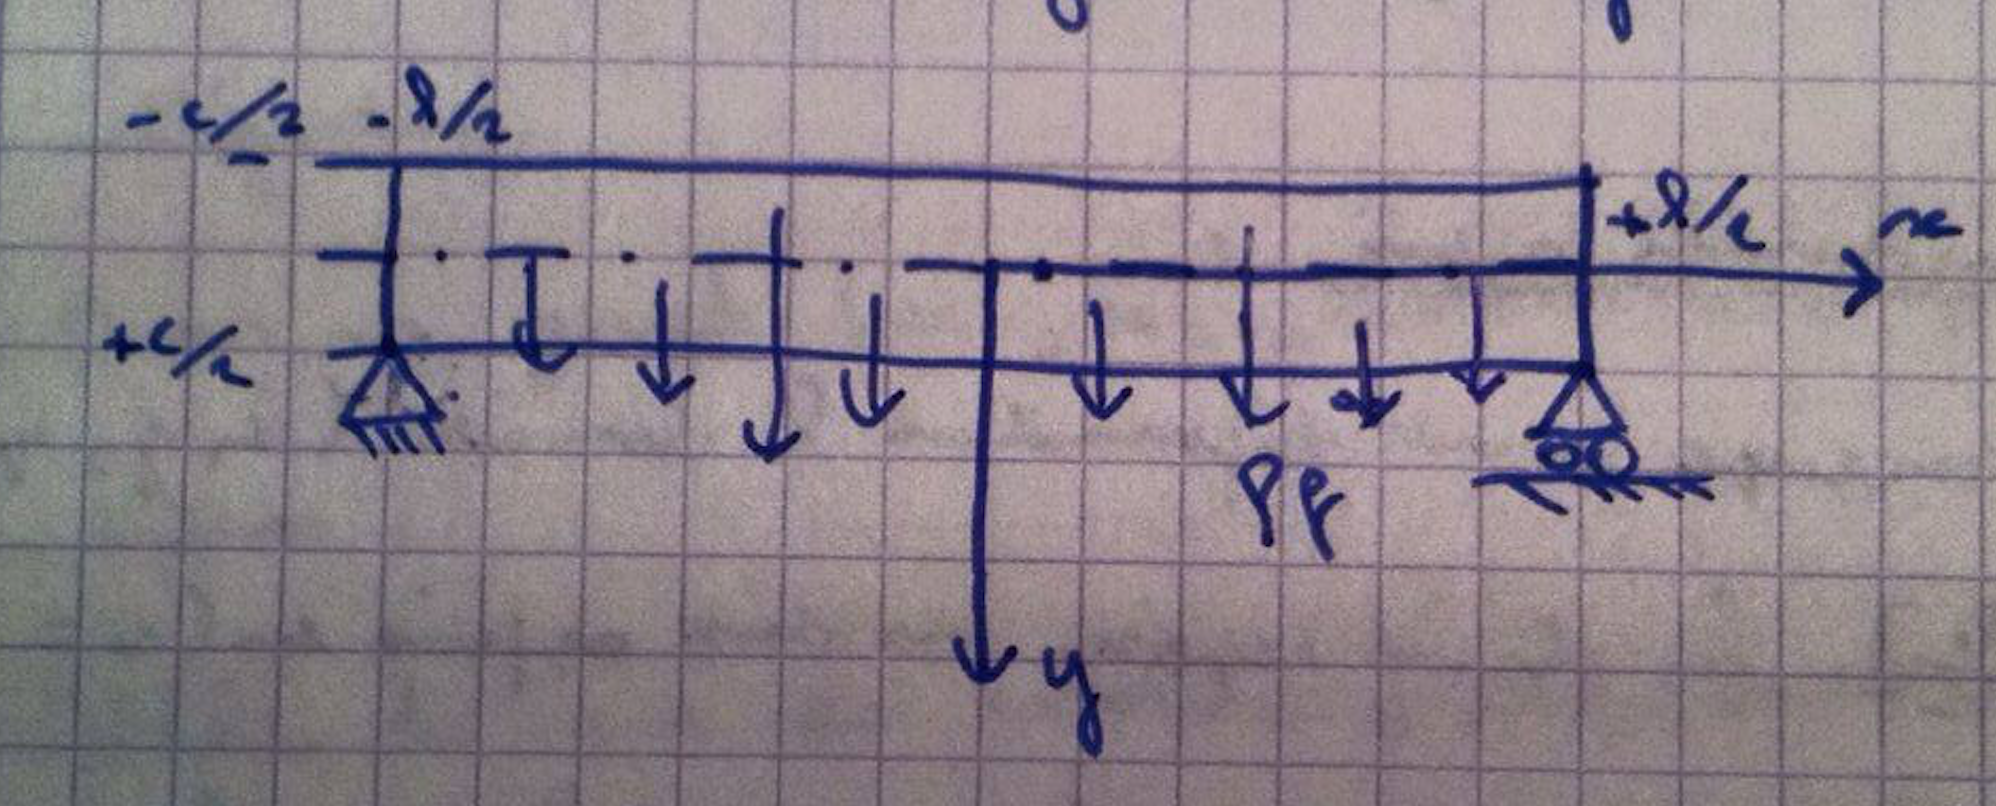 -c/2 -l/2
+l/2 x
+c/2
ρg
y